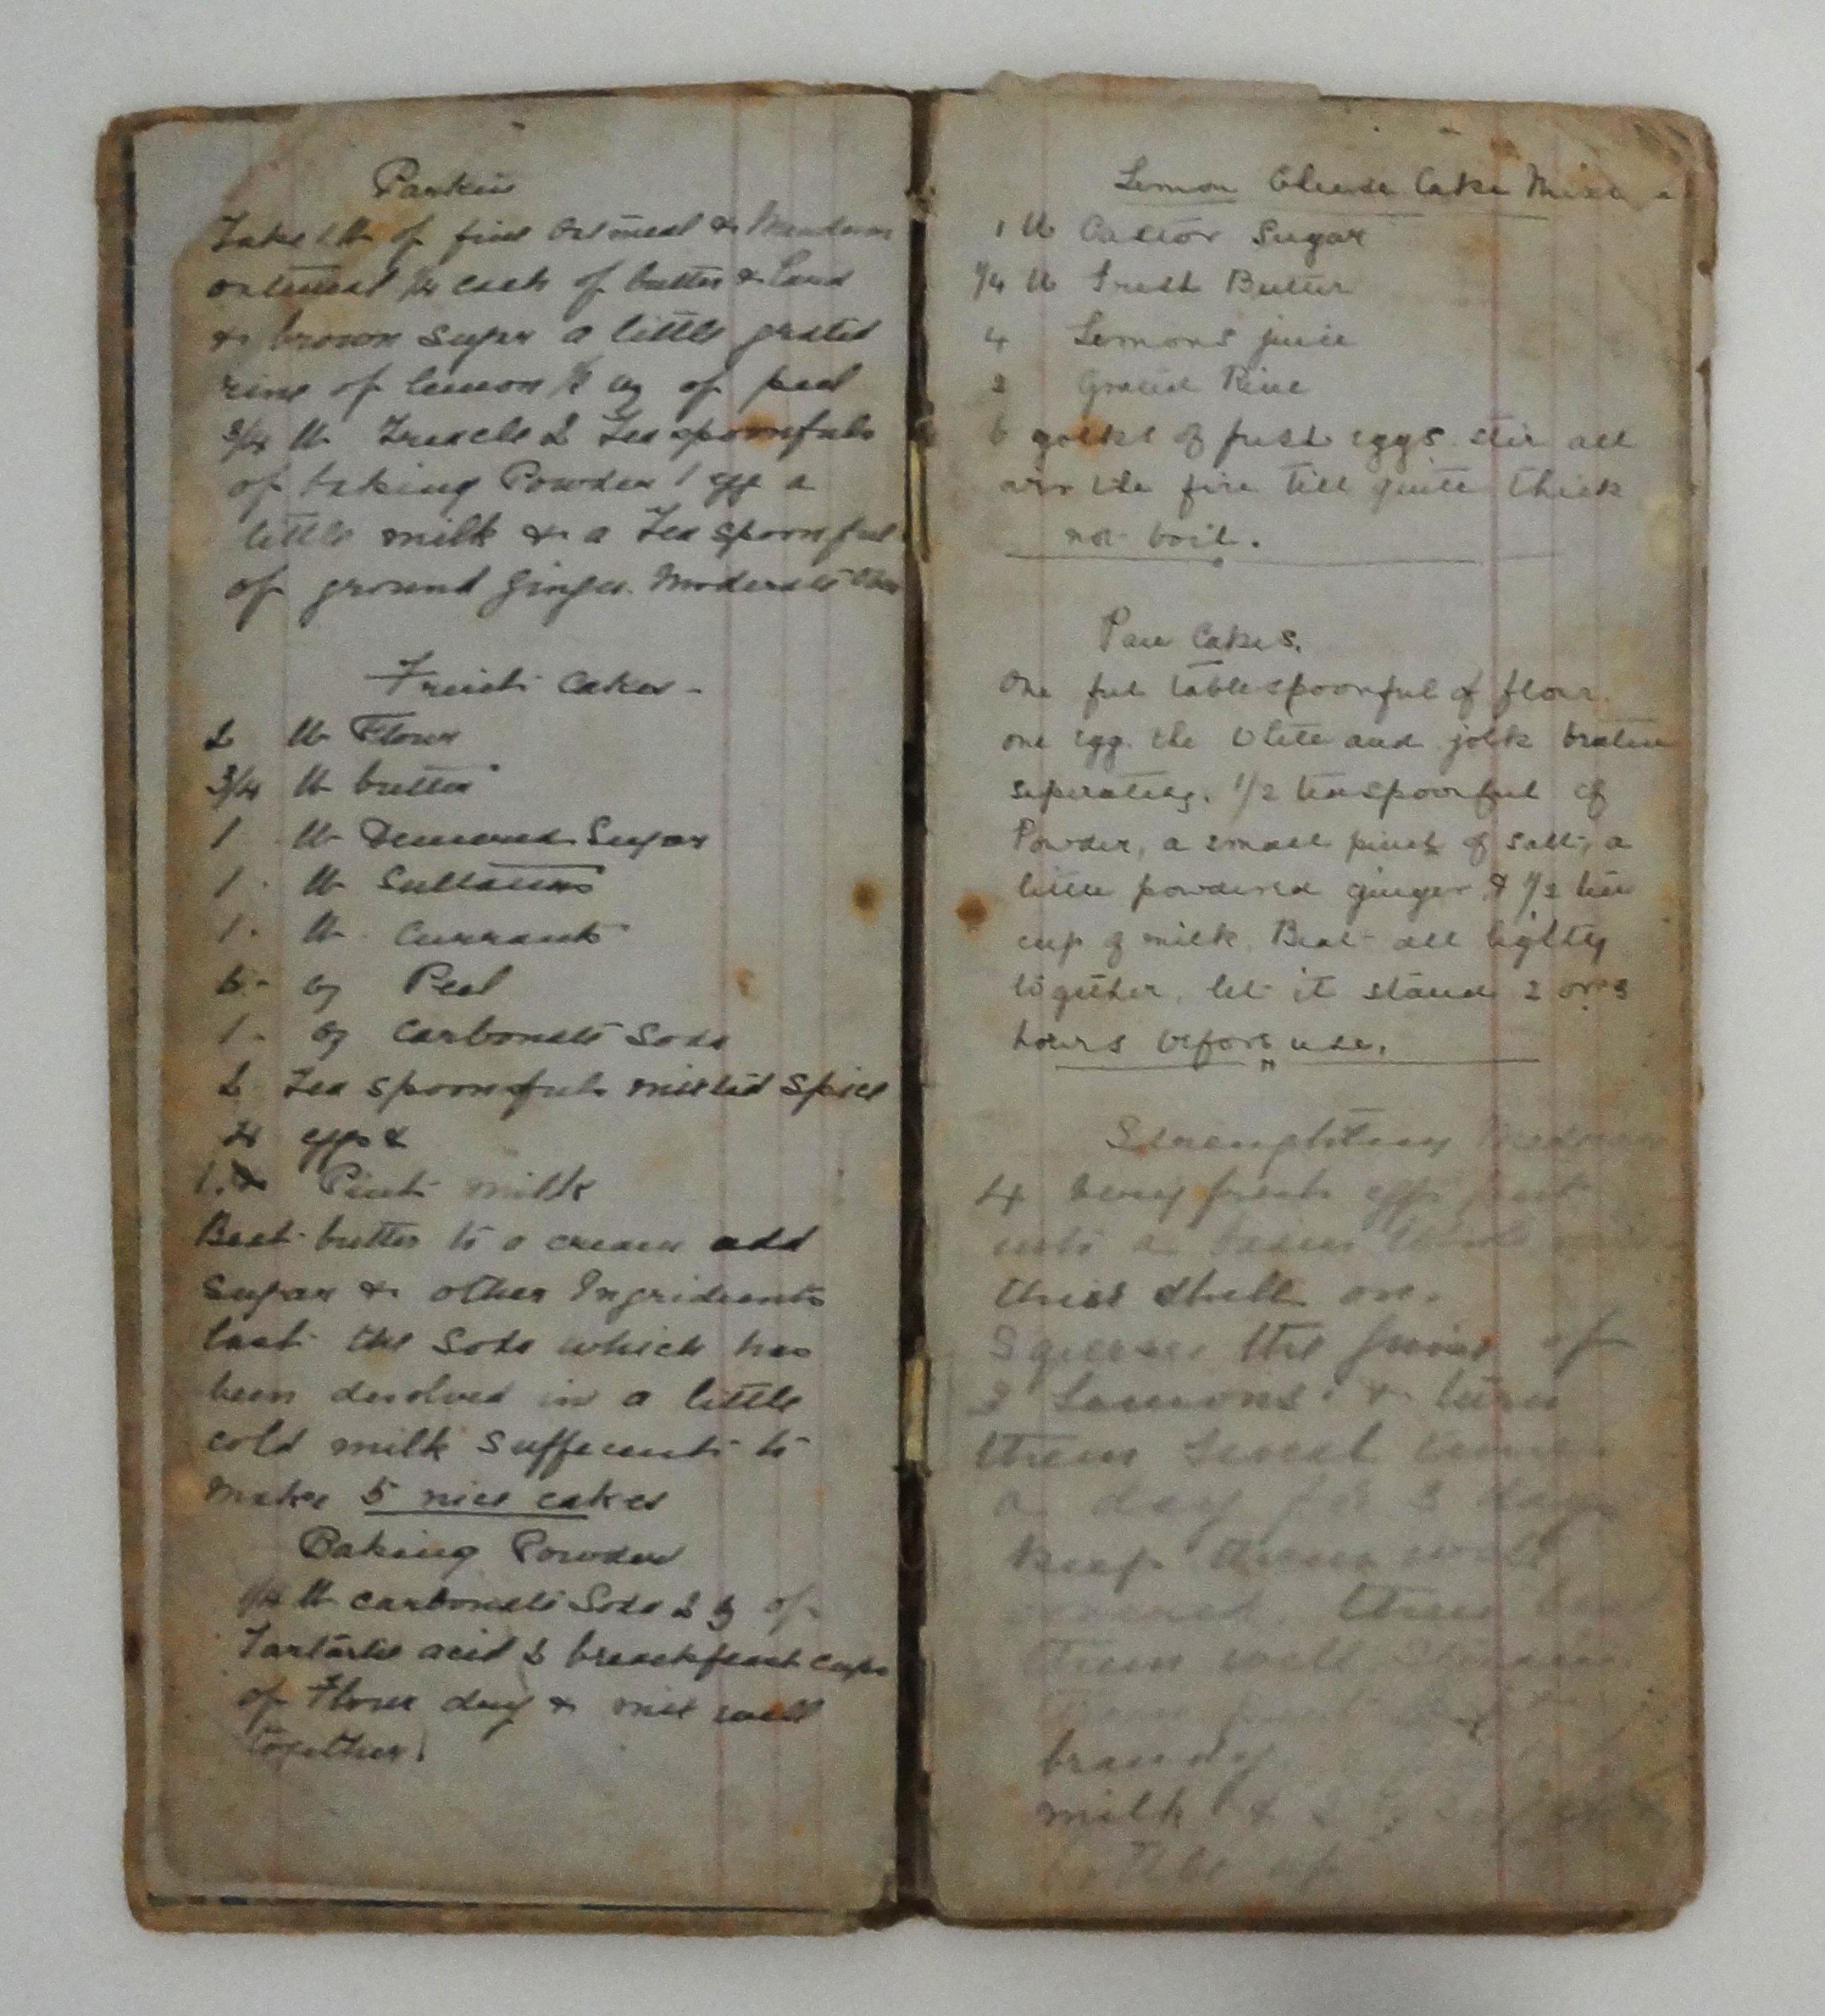 Parkin
Take 1 lb of fine oatmeal & Medium
oatmeal 1/4 each of butter & Lard
& brown sugar a little grated
rine of lemon 1/2 oz of peel
3/4 lb Treacle 2 Teaspoonfuls
of baking Powder 1 egg a
little milk & a Tea spoonful
of ground ginger. Moderate Oven
Fruit Cakes -
2 lb Flour
3/4 lb butter
1 lb Demerara Sugar
1 lb Sultanas
1 lb Currants
6 oz Peel
1 oz Carbonate Soda
2 Tea spoonfuls mixed spice
4 eggs &
1. Pint milk
Beat butter to a cream add
sugar & other Ingridients
last the Soda which has
been desolved in a little
cold milk Suffecent to
make 5 nice cakes
Baking Powder
1/4 lb carbonate Soda 2 oz of
Tartaric acid 2 breackfeast cups
of Flour dry & mix well
together.
Lemon Cheese Cake
1 lb Castor Sugar
1/4 lb Fresh Butter
4 Lemons juice
2 Grated Rine
6 yolks of fresh eggs. stir all
over the fire till quite thick
not boil.
Pan Cakes.
One full tablespoonful of flour.
one egg. the white and yolk beaten
seperately. 1/2 teaspoonful of
Powder, a small pinch of salt, a
little powdered ginger & 1/2 tea
cup of milk. Beat all lightly
together, let it stand 2 or 3
hours before use.
4 very fresh eggs put
into a basin
shell on.
the juice of
2 Lemons & turn
them
a day for 3 days
keep them well
covered. then
them well
brandy
milk &